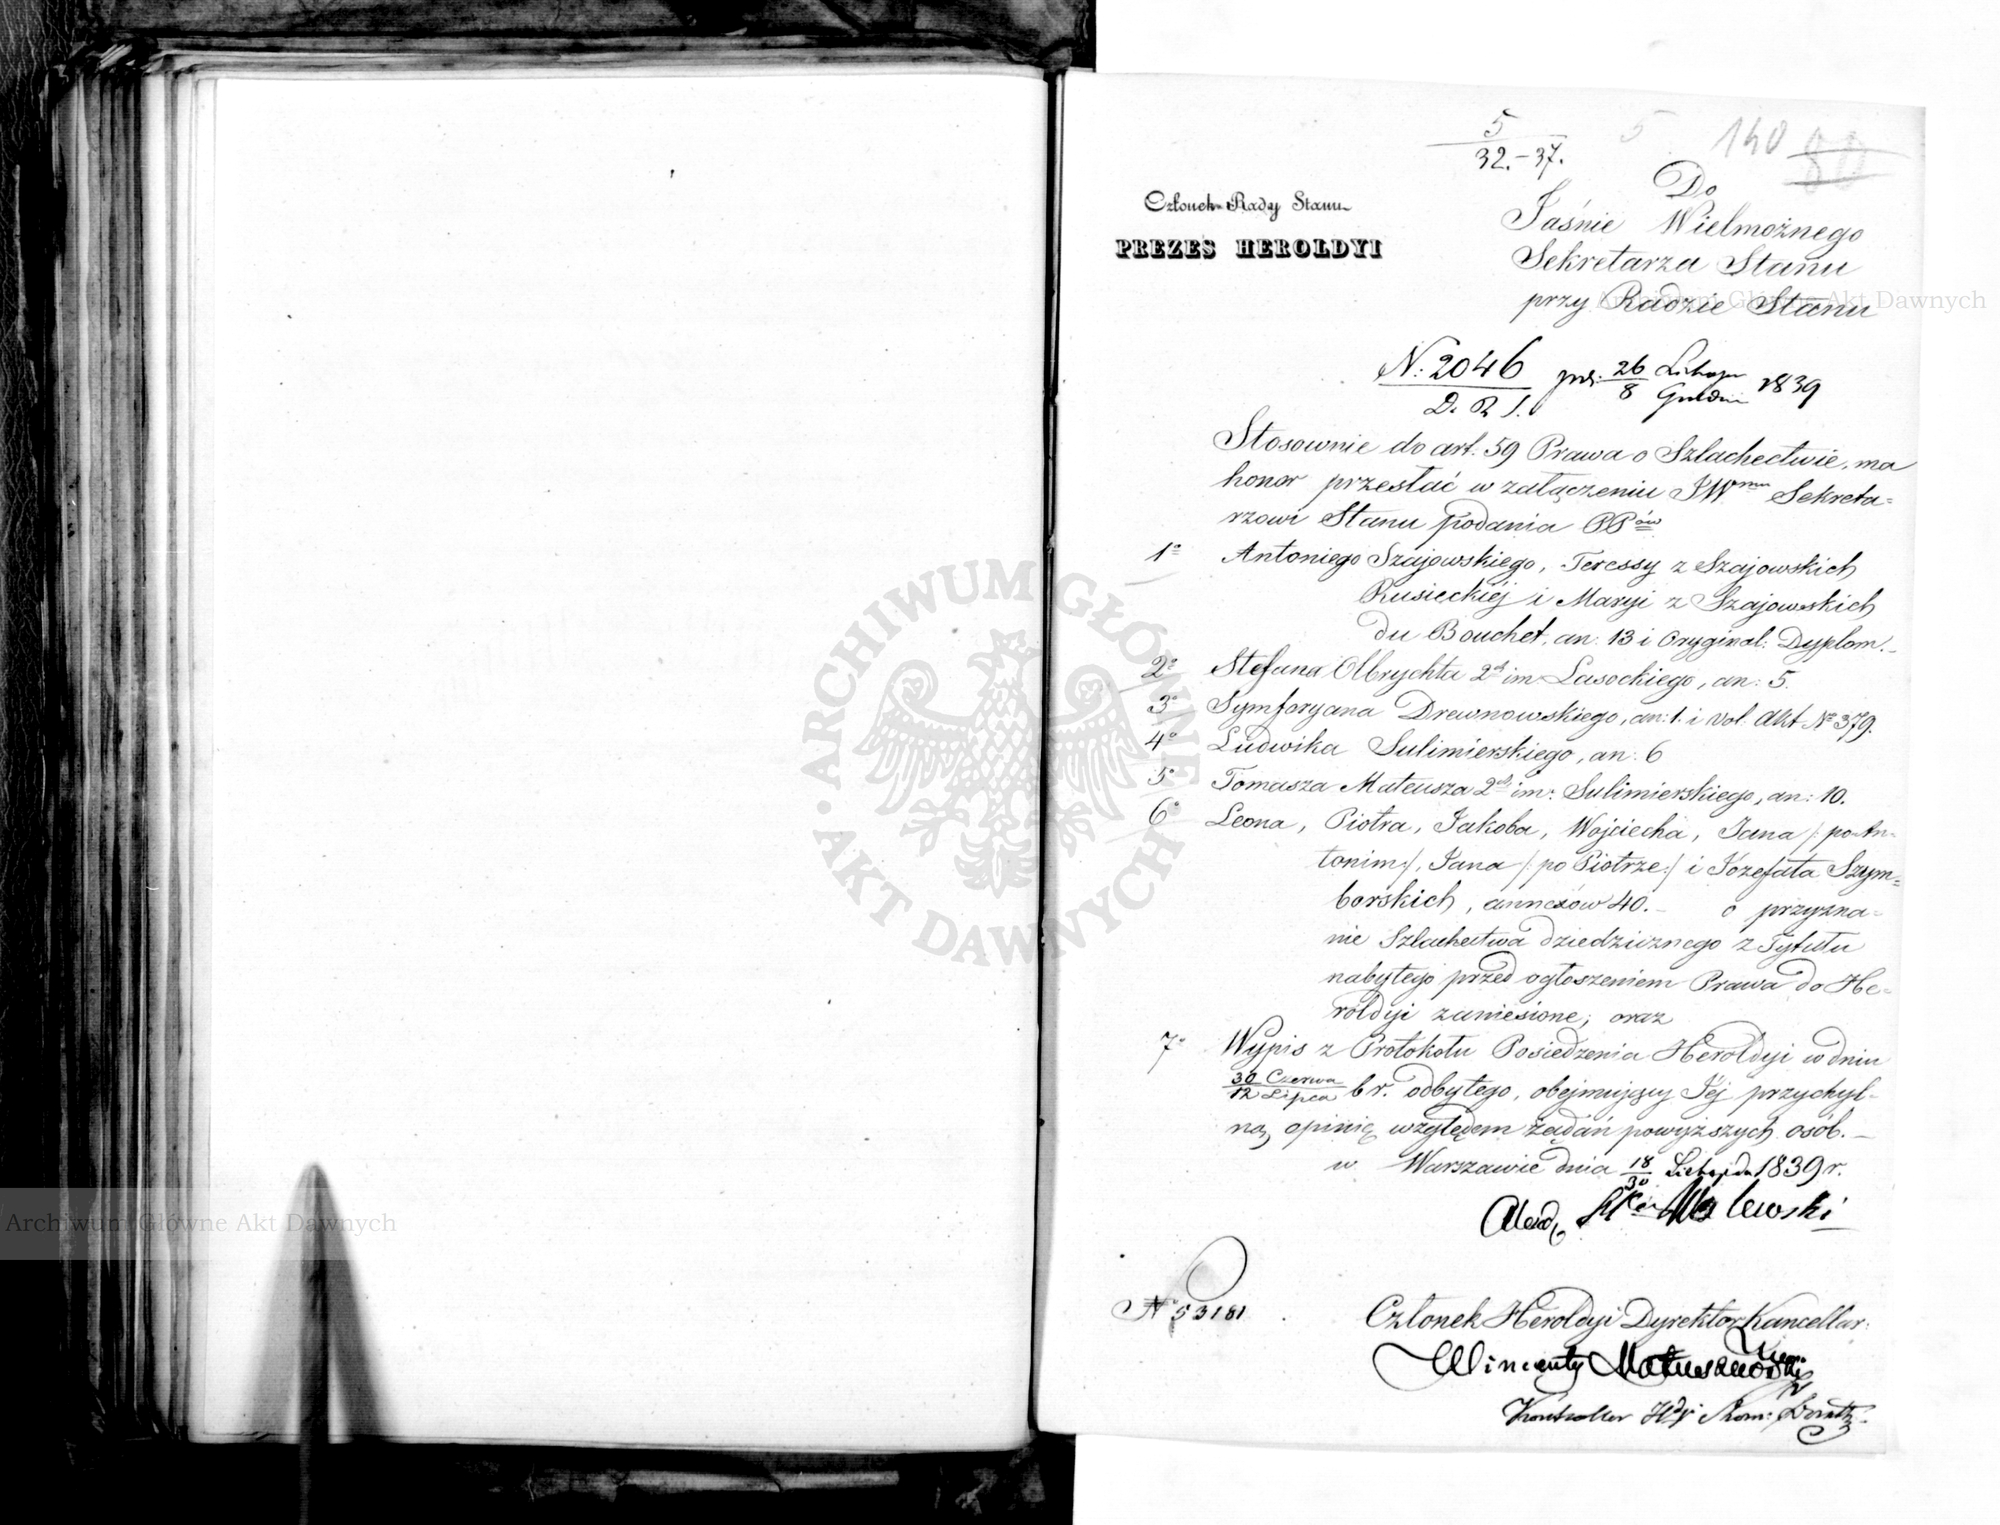 5
32.-37.
5
140
80
Członek Rady Stanu
PREZES HEROLDYI
Do
Jaśnie Wielmożnego
Sekretarza Stanu
przy Radzie Stanu
N: 2046
D. R. S.
26 Listopa
8 Grudnia 1839
Stosownie do art. 59 Prawa o Szlachectwie, ma
honor przesłać w załączeniu JWmu Sekreta=
rzowi Stanu podania PPów
1o Antoniego Szajowskiego, Teressy z Szajowskich
Rusieckiéj i Maryi z Szajowskich
du Bouchet, an: 13 i Oryginal: Dyplom.
2o Stefana Olbrychta 2ch im Lasockiego, an: 5.
3o Symforyana Drewnowskiego, an: 1. i vol. Akt No 379.
4o Ludwika Sulimierskiego, an: 6
5o Tomasza Mateusza 2ch im: Sulimierskiego, an: 10.
6o Leona, Piotra, Jakóba, Wojciecha, Jana /: po An=
tonim:/, Jana /: po Piotrze:/ i Józefata Szym=
borskich, annexów 40. – o przyzna=
nie Szlachectwa dziedzicznego z Tytułu
nabytego przed ogłoszeniem Prawa do He=
roldyi zaniesione; oraz
7o Wypis z Protokołu Posiedzenia Heroldyi w dniu
30 Czerwca
12 Lipca b r. odbytego, obejmujący Jéj przychyl=
ną opinię względem żądań powyższych osób. –
w Warszawie dnia 18/30 Listopada 1839 r.
Walewski
No 53181
Członek Heroldyi Dyrektor Kancellar:
Wincenty Matuszewski
Kontroller
ARCHIWUM GŁÓWNE AKT DAWNYCH
Archiwum Główne Akt Dawnych
Archiwum Główne Akt Dawnych